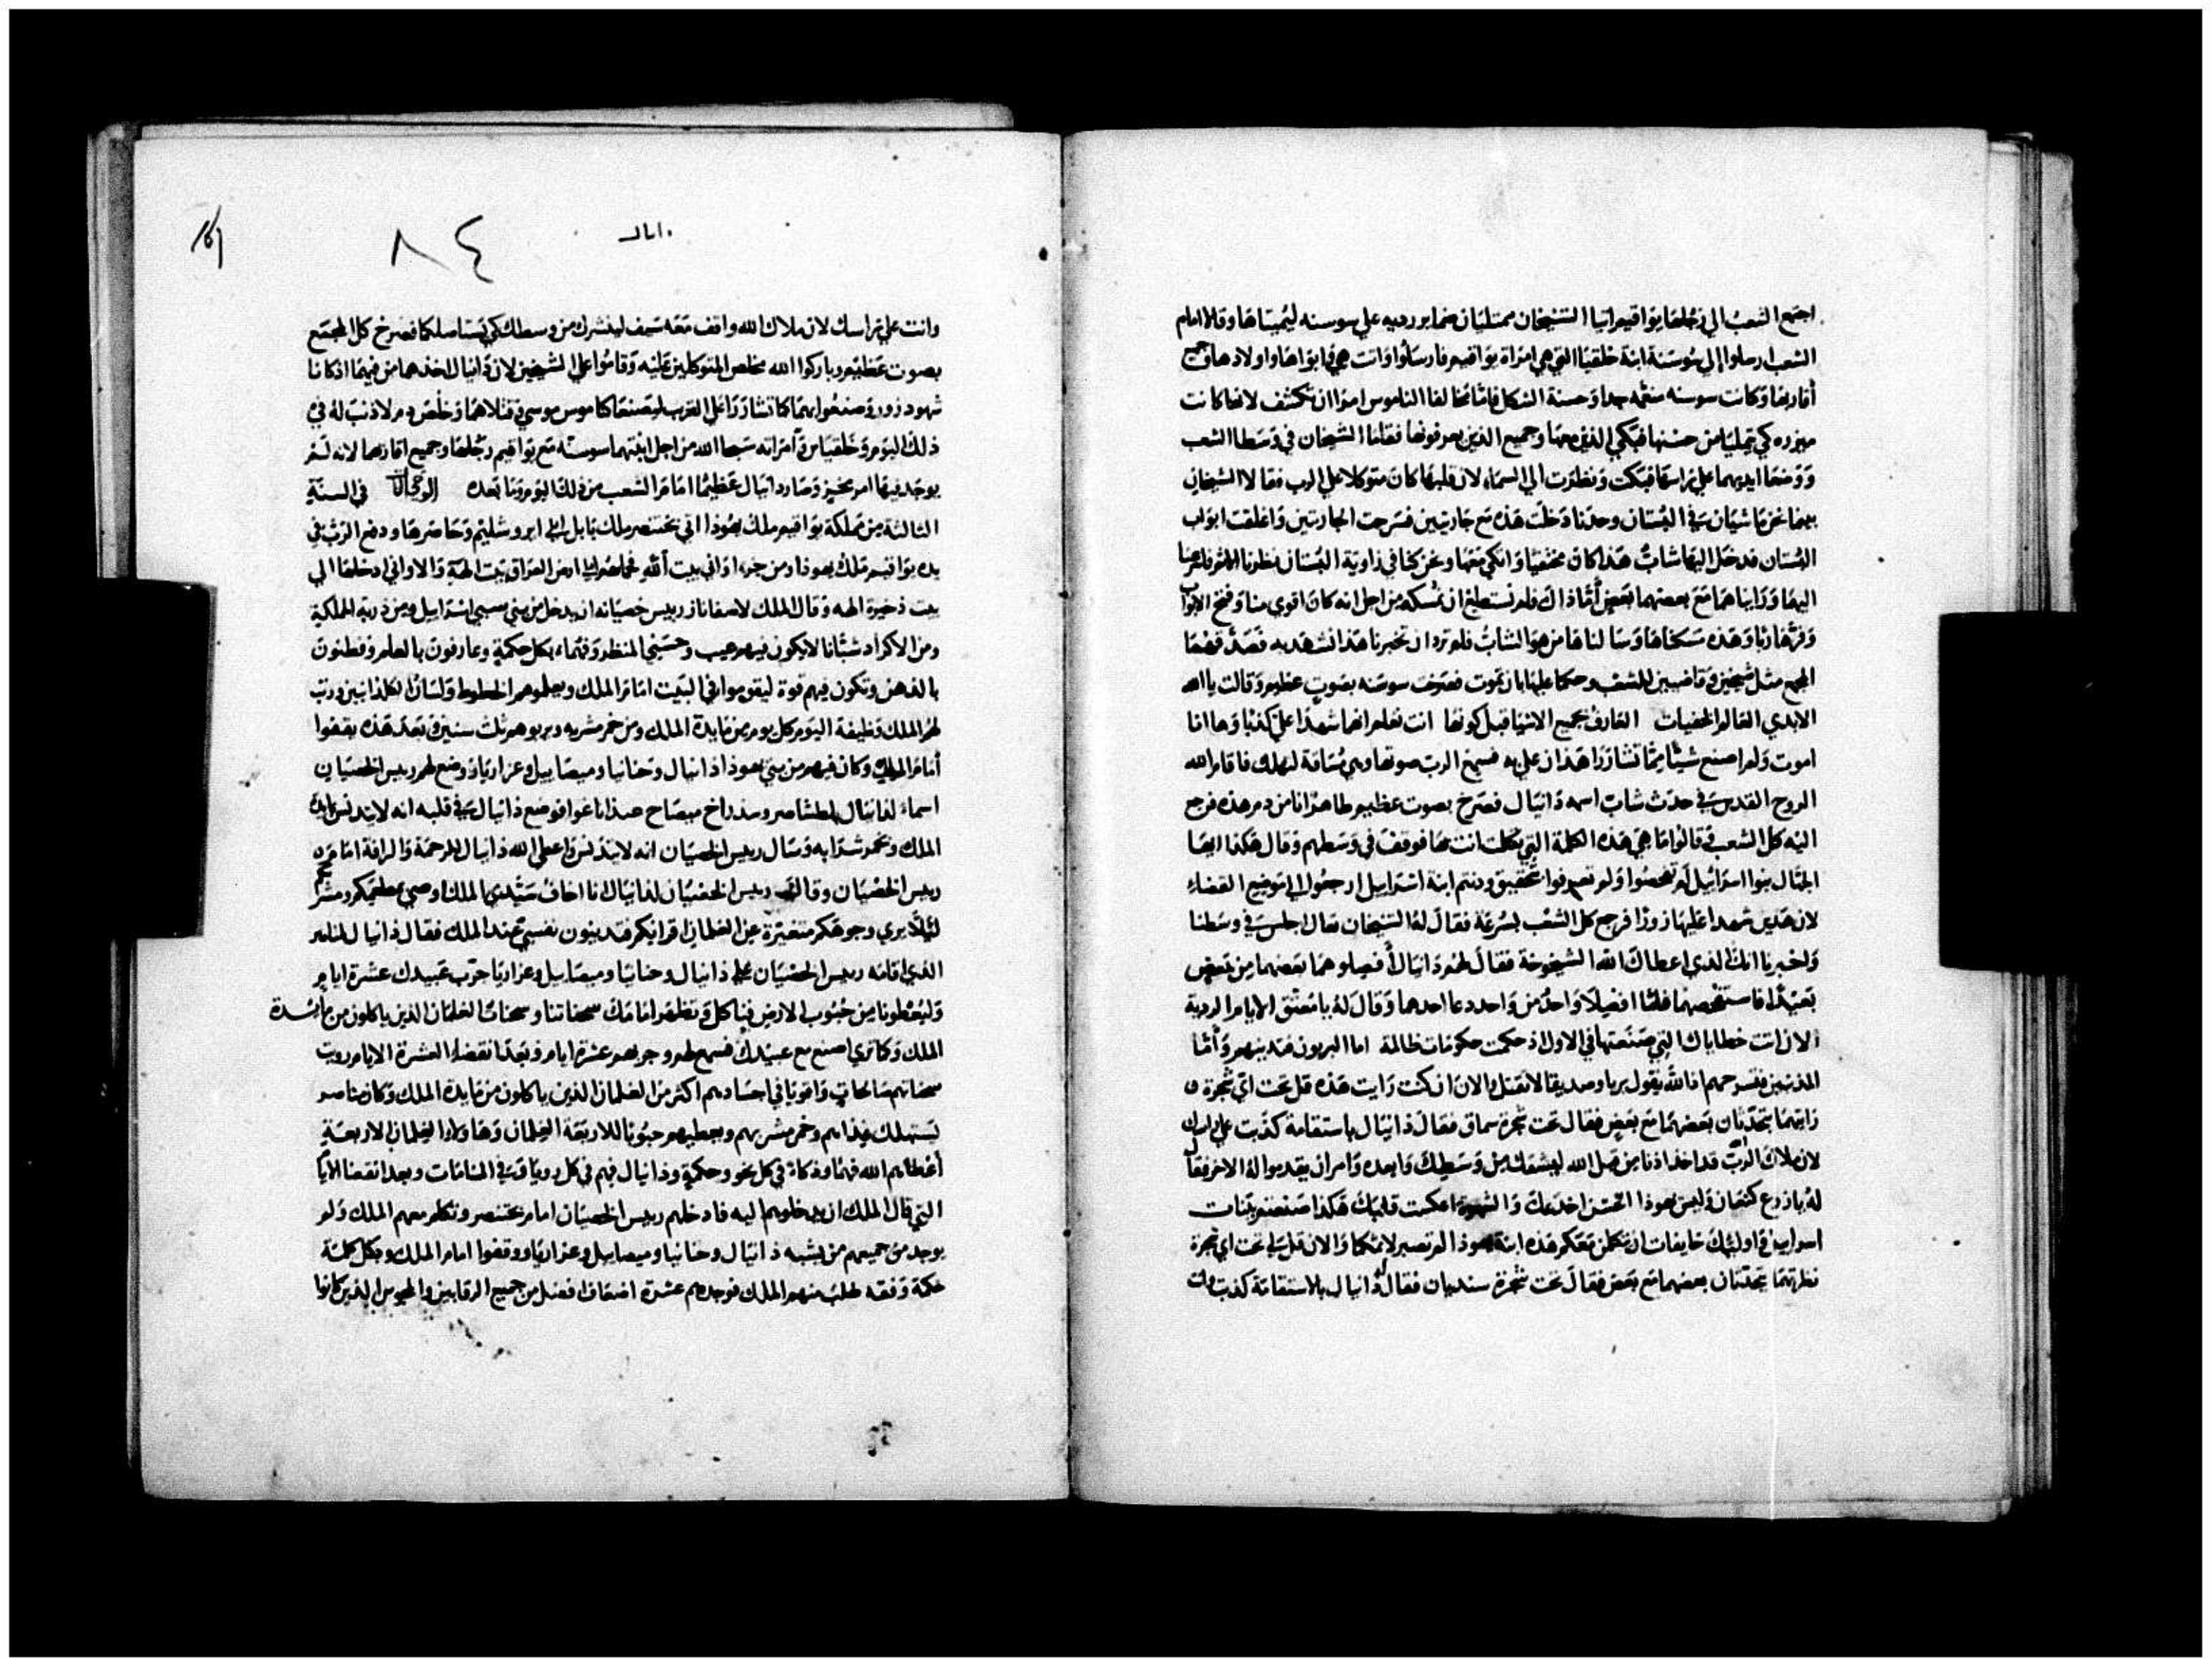 اجتمع الشعب الي رجلها يواقيم اتيا الشيخان ممتليان ضماير رديه علي سوسنه ليميتاها وقالا امام
الشعب ارسلوا الي سوسنة ابنة خلقيا التي هي امراة يواقيم فارسلوا واتت هي وابواها واولادها وجميع
أقاربها وكانت سوسنه منعمه جدا وحسنة الشكل فامّا مخالفا الناموس امرا ان تكشف لانها كانت
مبرزه كي يمليا من حسنها فبكي الذين معها وجميع الذين يعرفونها فقاما الشيخان في وسط الشعب
ووضعا ايديهما علي راسها فبكت ونظرت الي السماء لان قلبها كان متوكلا علي الرب فقالا الشيخان
بينما نحن ماشيان في البستان وحدنا دخلت هذه مع جاريتين فسرحت الجاريتين واغلقت ابواب
البستان فدخل اليها شابٌ هذا كان مختفيا واتكي معها ونحن كنا في زاوية البستان نظرنا الاثم فاسرعنا
اليها وراينا هما مع بعضهما بعض أمّا ذاك فلم نستطع ان نمسكه من اجل انه كان اقوي منا وفتح الابواب
وفر هاربا وهذه مسكناها وسالناها من هو الشاب فلم ترد ان تخبرنا هذا نشهد به فصدقهما
المجمع مثل شيخين وقاضيين للشعب وحكما عليها بان تموت فصرخت سوسنه بصوت عظيم وقالت يا الله
الابدي العالم الخفيات العارف بجميع الاشيا قبل كونها انت تعلم انهما شهدا علي كذبا وها انا
اموت ولم اصنع شيئًا ممّا تشاورا هذان علي به فسمع الرب صوتها وهي مُسَاقة لتهلك فاقام الله
الروح القدس في حدث شاب اسمه دانيال فصرخ بصوت عظيم طاهرٌ انا من دم هذه فرجع
اليه كل الشعب وقالوا ما هي هذه الكلمة التي تكلمت انت بها فوقف في وسطهم وقال هكذا ايها
الجهّال بنوا اسرائيل لم تفحصوا ولم تعرفوا بتحقيق ودنتم ابنة اسراييل ارجعوا الي موضع القضاء
لان هذين شهدا عليها زورًا فرجع كل الشعب بسرعة فقال له الشيخان تعال اجلس في وسطنا
واخبرنا انك الذي اعطاك الله الشيخوخة فقال لهم دانيال أفصلوهما بعضهما من بعض
بعيدًا فاستفحصهما فلمّا انفصلا واحدٌ من واحد دعا احدهما وقال له يا معتق الايام الردية
الان اتت خطاياك التي صنعتها في الاول اذ حكمت حكومات ظالمة اما البريون فتدينهم وأمّا
المذنبين فتسرحهم فالله يقول بريا وصديقا لا تقتل والان ان كنت رايت هذه قل تحت ايّ شجرة
رايتهما يتحدّثان بعضهما مع بعض فقال تحت شجرة سماق فقال دانيال باستقامة كذبت علي راسك
لان ملاك الربّ قد اخذ اذنا من قبل الله ليشقك من وسطك وابعده وامر ان يقدموا له الاخر فقال
له يا زرع كنعان وليس يهوذا الحسن اخدعك والشهوة اعكست قلبك هكذا صنعتم ببنات
اسراييل واوليك خايفات ان تتكلمن معكم هذه ابنة يهوذا لم تصبر لاثمكما والان قل لي تحت اي شجرة
نظرتهما يتحدّثان بعضهما مع بعض فقال تحت شجرة سنديان فقال له دانيال بالاستقامة كذبت وانت
دانيال
٨٤
وانت علي راسك لان ملاك الله واقف معه سيف لينشرك من وسطك كي يستاصلكما فصرخ كل المجمع
بصوت عظيم وباركوا الله مخلص المتوكلين عليه وقاموا علي الشيخين لان دانيال اخذهما من فيهما اذ كانا
شهود زور وصنعوا بهما كما تشاوروا علي القريب ليصنعا كناموس موسي وقتلاهما وخلص دم لا ذنب له في
ذلك اليوم وخلقيا وامراته سبحا الله من اجل ابنتهما سوسنّة مع يواقيم رجلها وجميع اقاربها لانه لم
يوجد فيها امر مخيز وصار دانيال عظيمًا امام الشعب من ذلك اليوم وما بعده في السنة
الثالثة من مملكة يواقيم ملك يهوذا اتي بختنصر ملك بابل الي ايروشليم وحاصرها ودفع الربّ في
يده يواقيم ملك يهوذا ومن جزء اواني بيت الله فحملهم الي ارض العراق بيت الهه والاواني ادخلها الي
بيت ذخيرة الهه وقال الملك لاسفاناز رييس خصيانه ان يدخل من بني سبي اسراييل ومن ذرية المملكة
ومن الاكراد شبّانا لا يكون فيهم عيب وحسني المنظر وفهماء بكل حكمة وعارفون بالعلم وفطنون
بالذهن وتكون فيهم قوة ليقوموا في البيت امام الملك ويعلموهم الخطوط ولسان الكلدانيين ورتب
لهم الملك وظيفة اليوم كل يوم من مايدة الملك ومن خمر مشربه ويربوهم ثلث سنين وبعد هذه يقفوا
أمام الملك وكان فيهم من بني يهوذا دانيال وحنانيا وميصاييل وعزاريا ووضع لهم رييس الخصيان
اسماء لدانيال بلطشاصر وسدراخ ميصاح عبداناغوا فوضع دانيال في قلبه انه لا يتدنس بمايدة
الملك وبخمر شرابه وسال رييس الخصيان انه لا يتدنس واعطي الله دانيال للرحمة والرافة امام
رييس الخصيان وقال رييس الخصيان لدانيال انا اخاف سيّدي الملك اوصي بطعامكم ومشربكم
لئلا يري وجوهكم متغيّرة عن الغلمان اقرانكم فتدينون نفسي عند الملك فقال دانيال لمناصر
الذي اقامه رييس الخصيان علي دانيال وحنانيا وميصاييل وعزاريا جرّب عبيدك عشرة ايام
وليعطونا من حبوب الارض فناكل وتظهر امامك سحناتنا وسحنات الغلمان الذين ياكلون من مائدة
الملك وكما تري اصنع مع عبيدك فسمع لهم وجربهم عشرة ايام وبعد انقضاء العشرة الايام رويت
سحناتهم صالحات واقويا في اجسادهم اكثر من الغلمان الذين ياكلون من مايدة الملك وكان مناصر
يستهلك غذاهم وخمر مشربهم ويعطيهم حبوبا للاربعة الغلمان وهاولاء الغلمان الاربعة
أعطاهم الله فهمًا وذكاة في كل نحو وحكمة ودانيال فهم في كل رويا وفي المنامات وبعد انقضا الايّام
التي قال الملك ان يدخلوهم اليه فادخلهم رييس الخصيان امام بختنصر وتكلم معهم الملك ولم
يوجد من جميعهم من يشبه دانيال وحنانيا وميصاييل وعزاريا ووقفوا امام الملك وبكل كلمة
حكمة وفقه طلب منهم الملك فوجدهم عشرة اضعاف افضل من جميع الرقايين والمجوس الذين كانوا